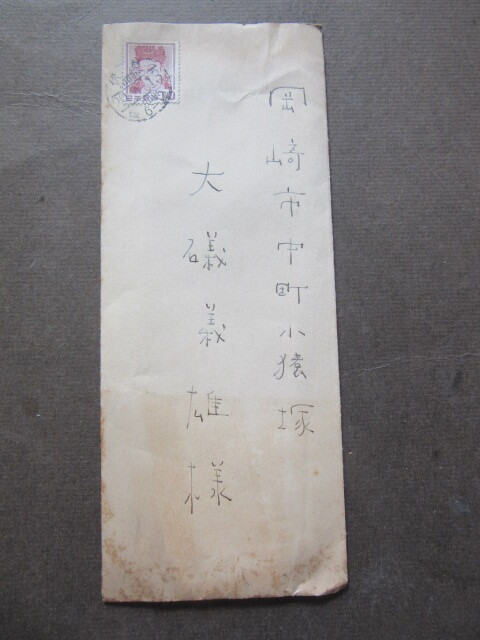 岡崎市中町小猿塚
大礒義雄様
日本郵便
10